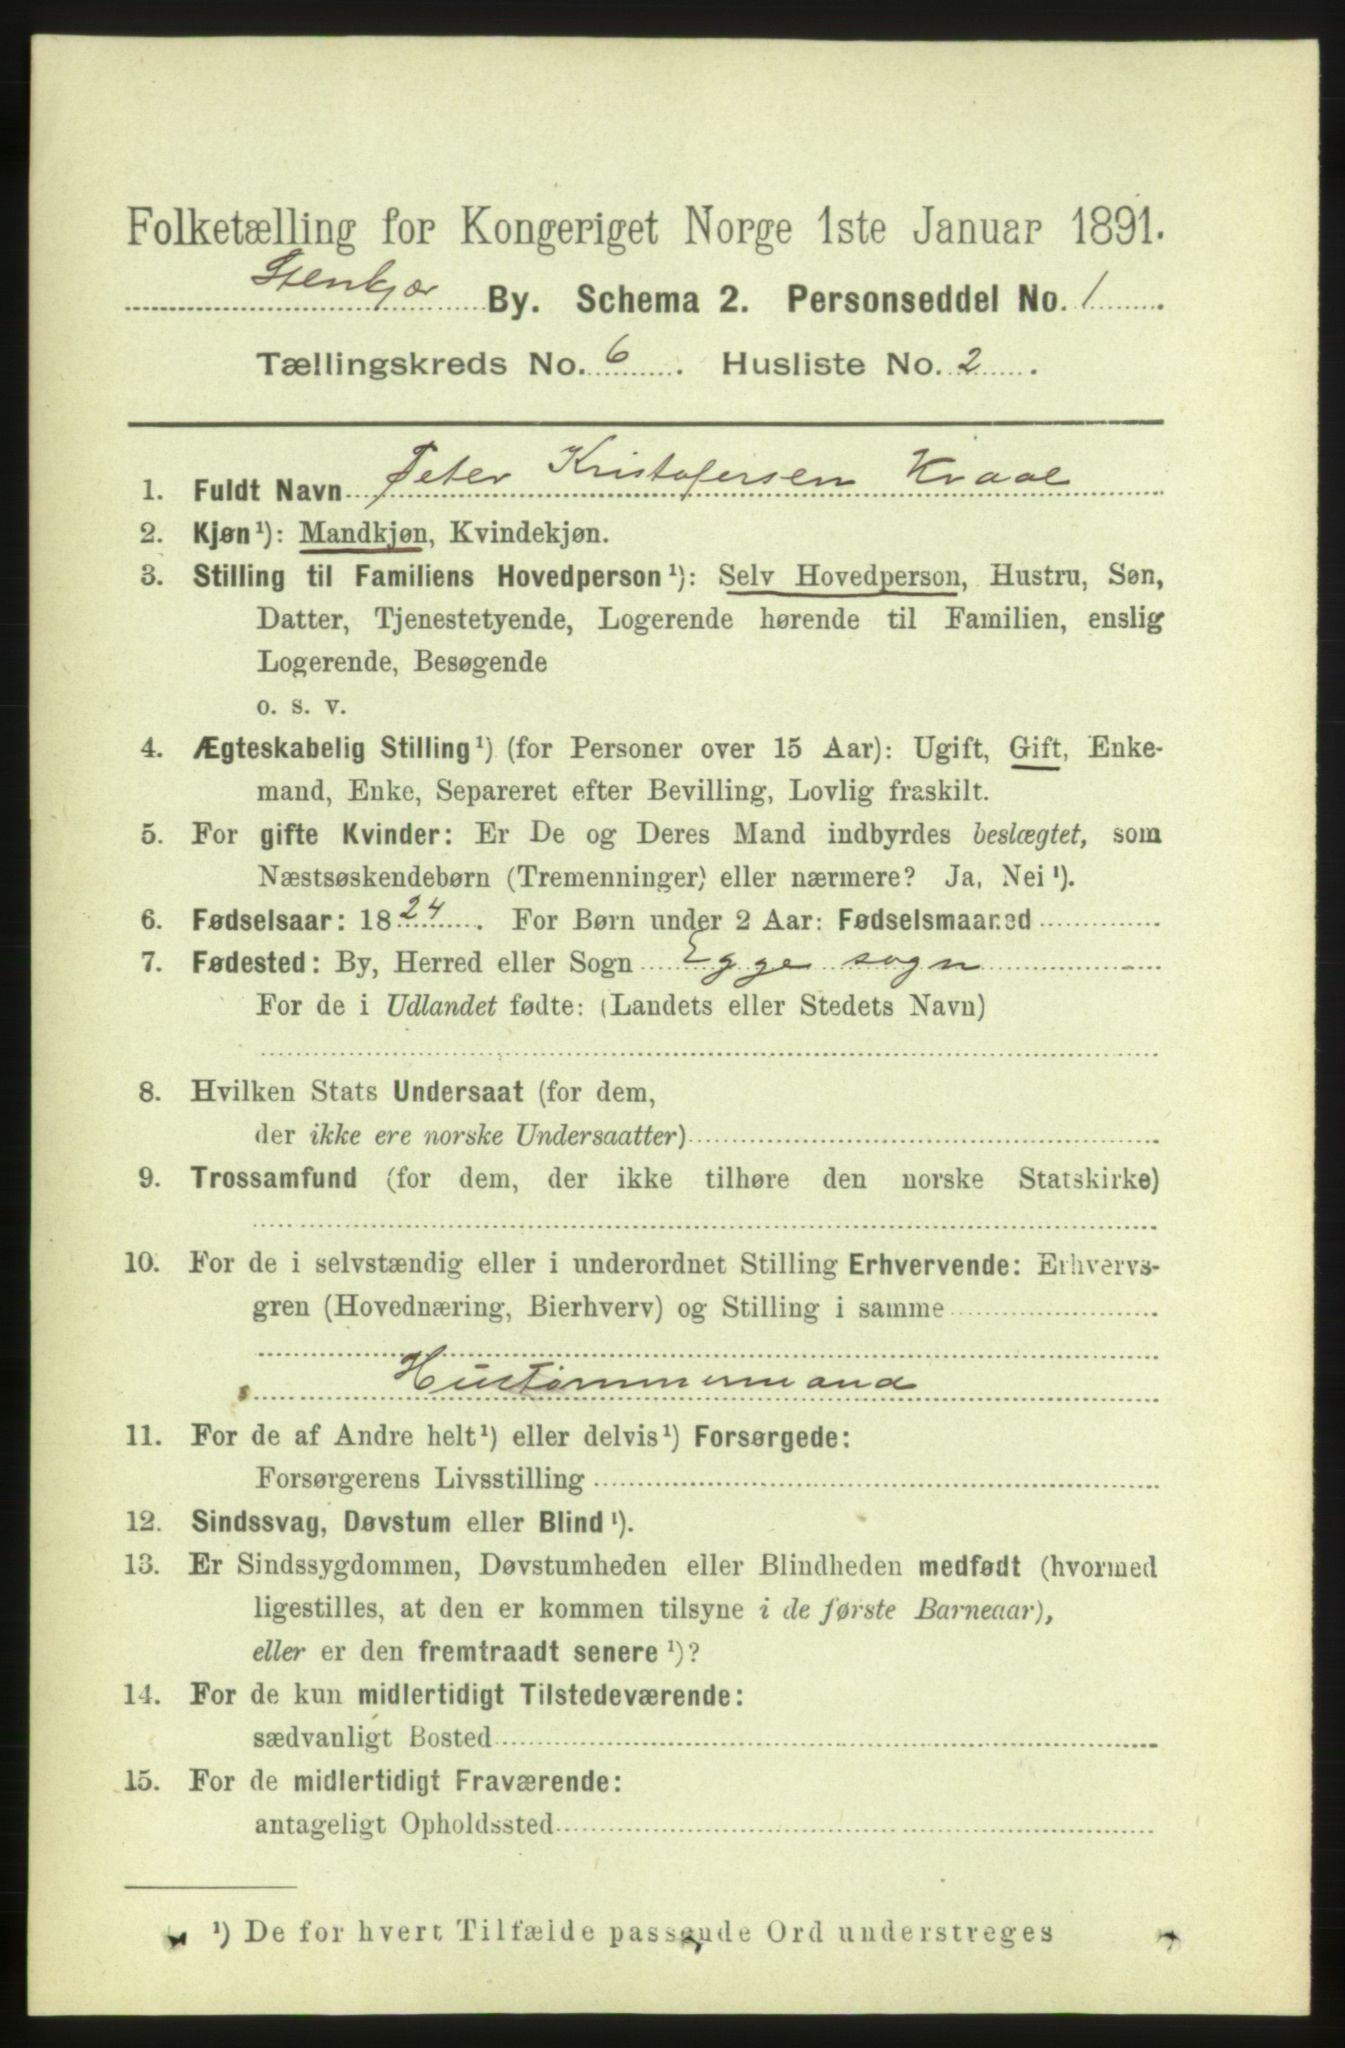 Folketælling for Kongeriget Norge 1ste Januar 1891.
Stenkjær By. Schema 2. Personseddel No. 1
Tællingskreds No. 6. Husliste No. 2.
1. Fuldt Navn Peter Kristofersen Kraal
2. Kjøn¹): Mandkjøn, Kvindekjøn.
3. Stilling til Familiens Hovedperson¹): Selv Hovedperson, Hustru, Søn,
Datter, Tjenestetyende, Logerende hørende til Familien, enslig
Logerende, Besøgende
o. s. v.
4. Ægteskabelig Stilling¹) (for Personer over 15 Aar): Ugift, Gift, Enke-
mand, Enke, Separeret efter Bevilling, Lovlig fraskilt.
5. For gifte Kvinder: Er De og Deres Mand indbyrdes beslægtet, som
Næstsøskendebørn (Tremenninger) eller nærmere? Ja, Nei¹).
6. Fødselsaar: 1824. For Børn under 2 Aar: Fødselsmaaned
7. Fødested: By, Herred eller Sogn Egge sogn
For de i Udlandet fødte: (Landets eller Stedets Navn)
8. Hvilken Stats Undersaat (for dem,
der ikke ere norske Undersaatter)
9. Trossamfund (for dem, der ikke tilhøre den norske Statskirke)
10. For de i selvstændig eller i underordnet Stilling Erhvervende: Erhvervs-
gren (Hovednæring, Bierhverv) og Stilling i samme
Hustømmermand
11. For de af Andre helt¹) eller delvis¹) Forsørgede:
Forsørgerens Livsstilling
12. Sindssvag, Døvstum eller Blind¹).
13. Er Sindssygdommen, Døvstumheden eller Blindheden medfødt (hvormed
ligestilles, at den er kommen tilsyne i de første Barneaar),
eller er den fremtraadt senere¹)?
14. For de kun midlertidigt Tilstedeværende:
sædvanligt Bosted
15. For de midlertidigt Fraværende:
antageligt Opholdssted
¹) De for hvert Tilfælde passende Ord understreges